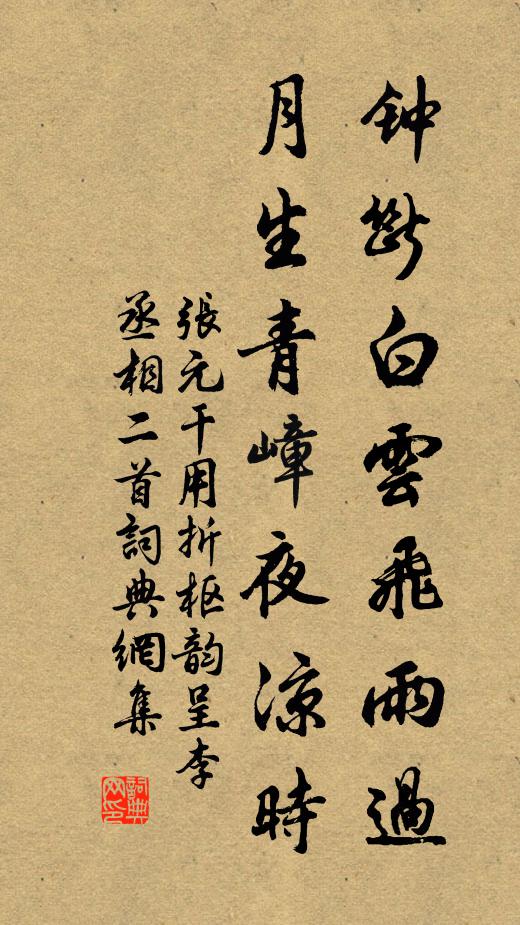 钟断白雲飛雨過
月生青嶂夜涼時
張元干用折枢韵呈李
丞相二首詞典網集
詞典
网印